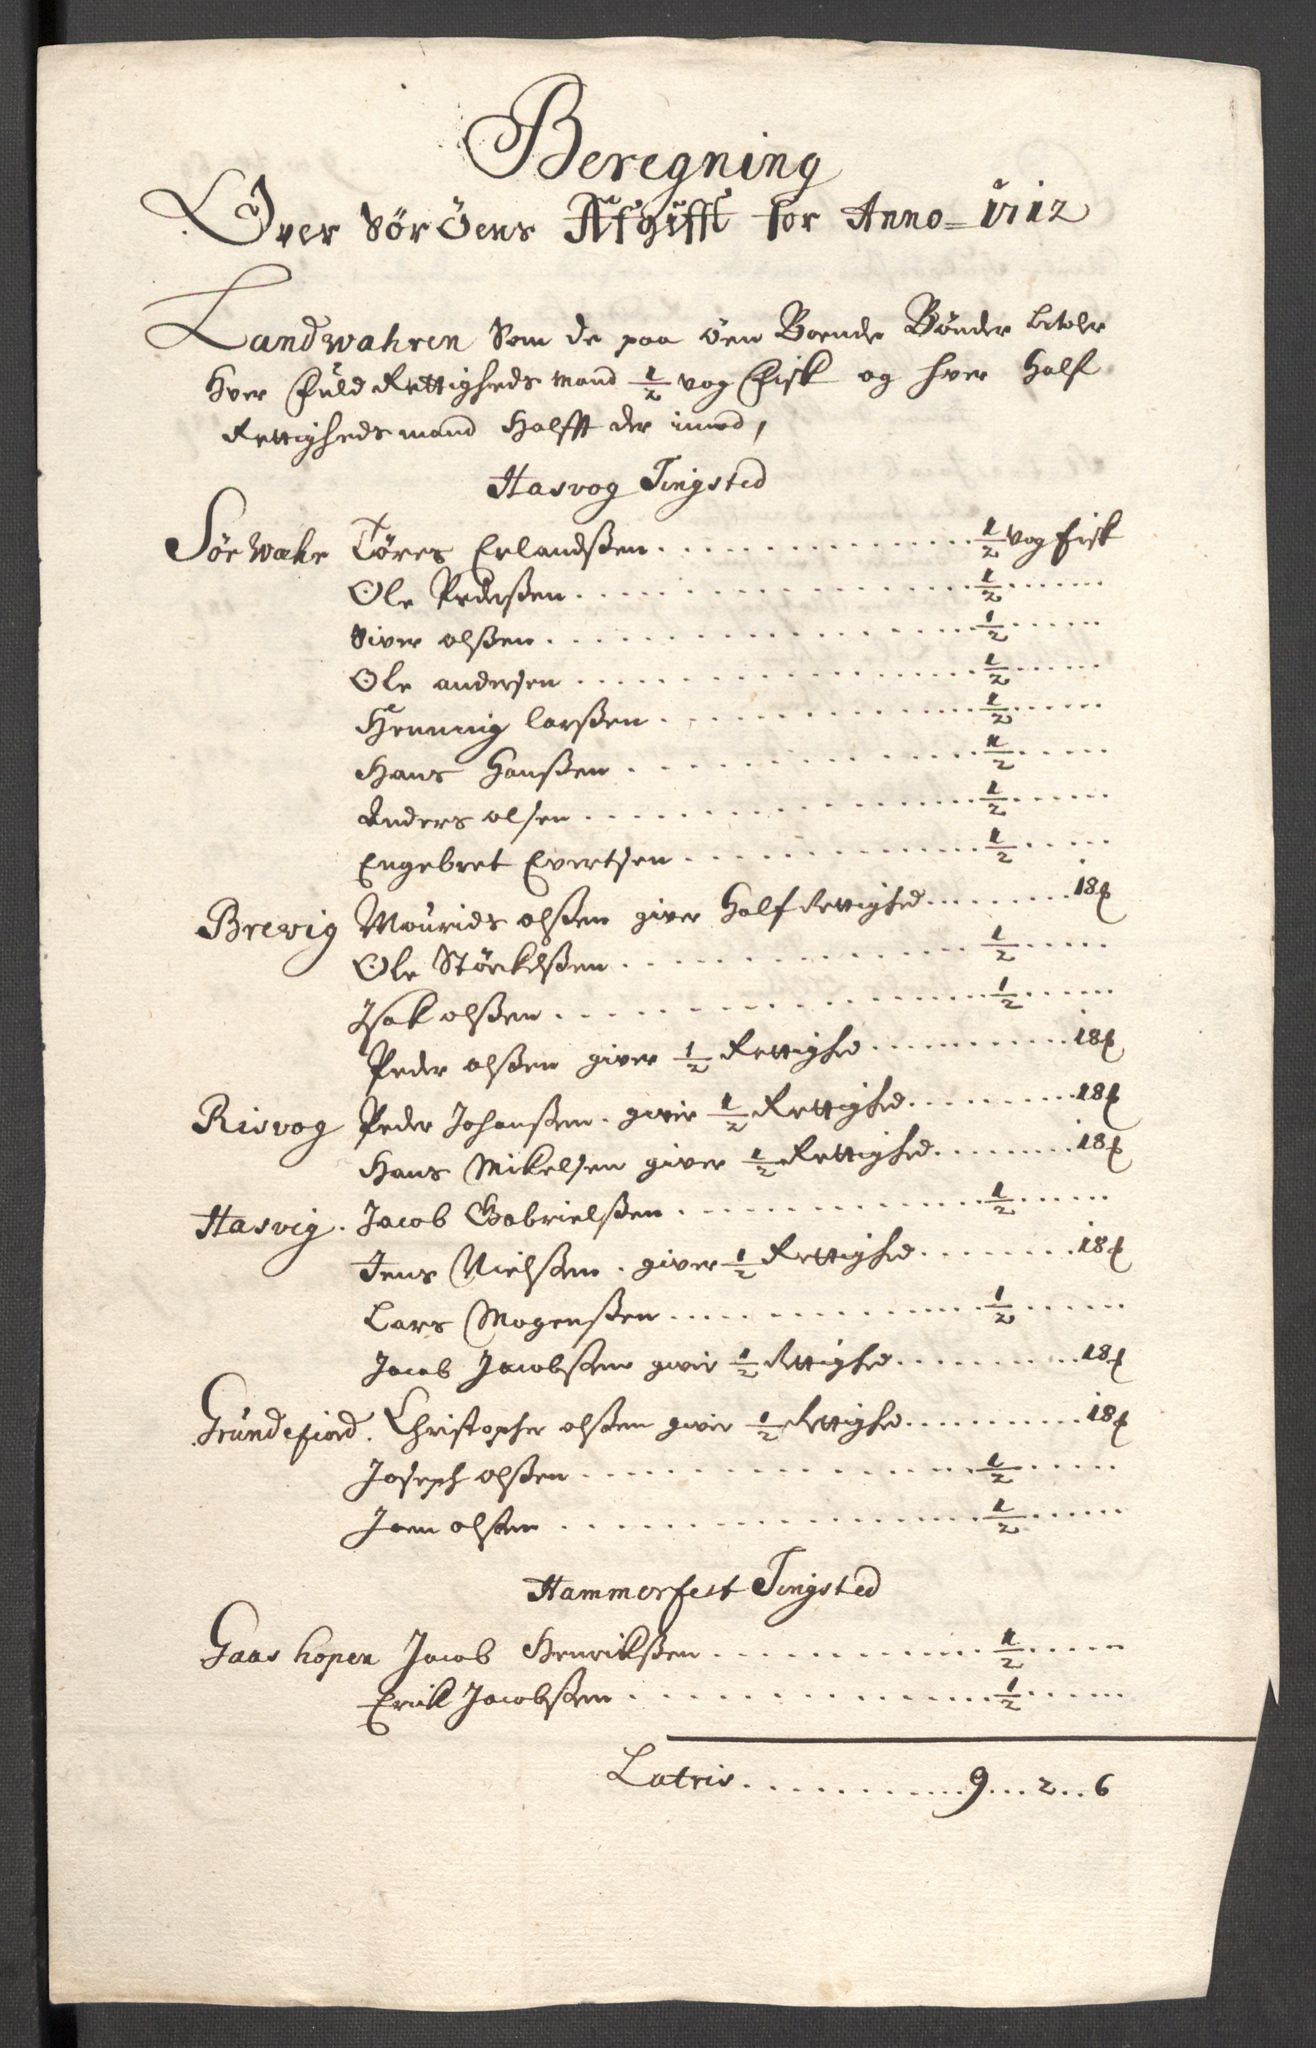 Beregning
Over Sör Öens Afgifft for Anno 1712
Landwahren Som de paa öen Boende Bönder betaler
Hver Fuld Rettigheds mand 1/2 vog Fisk og hver Half
Rettigheds mand Halfft der imod,
Hasvog Tingsted
Sörwahr Töres Erlandsßen 1/2 vog fisk
Ole Pedersßen 1/2
Siver olßen 1/2
Ole andersen 1/2
Henning larßen 1/2
Hans Hanßen 1/2
Anders olsen 1/2
Engebret Evertsen 1/2
Brevig Mourids olßen giver Half Rettighed 18 ℔
Ole Störckelßen 1/2
Isak olßen 1/2
Peder olßen giver 1/2 Rettighed 18 ℔
Risvog Peder Johanßen giver 1/2 Rettighed 18 ℔
Hans Mikelsen giver 1/2 Rettighed 18 ℔
Hasvig Jacob Gabrielßen 1/2
Jens Nielßen giver 1/2 Rettighed 18 ℔
Lars Mogenßen 1/2
Jacob Jacobßen giver 1/2 Rettighed 18 ℔
Grundefiord Christopher olßen giver 1/2 Rettighed 18 ℔
Joseph olßen 1/2
Joen olßen 1/2
Hammerfest Tingsted
Gaashopen Jacob Henrikßen 1/2
Erick Jacobßen 1/2
Latris 9 2 6